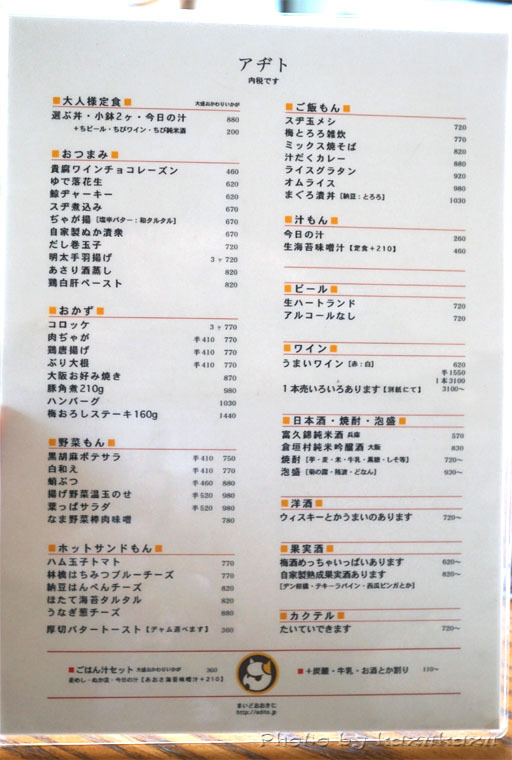 アヂト
内税です
大人様定食 大盛おかわりいかが
選ぶ丼・小鉢2ヶ・今日の汁 880
+ちビール・ちびワイン・ちび純米酒 200
おつまみ
貴腐ワインチョコレーズン 460
ゆで落花生 620
鯨ヂャーキー 620
スヂ煮込み 670
ぢゃが揚 [塩辛バター:和タルタル] 670
自家製ぬか漬衆 670
だし巻玉子 720
明太手羽揚げ 3ヶ720
あさり酒蒸し 820
鶏白肝ペースト 820
おかず
コロッケ 3ヶ 770
肉ぢゃが 半410 770
鶏唐揚げ 半410 770
ぶり大根 半410 770
大阪お好み焼き 870
豚角煮210g 980
ハンバーグ 1030
梅おろしステーキ160g 1440
野菜もん
黒胡麻ポテサラ 半410 750
白和え 半410 770
蛸ぶつ 半460 880
揚げ野菜温玉のせ 半520 980
葉っぱサラダ 半520 980
なま野菜棒肉味噌 780
ホットサンドもん
ハム玉子トマト 770
林檎はちみつブルーチーズ 770
納豆はんぺんチーズ 820
ほたて海苔タルタル 820
うなぎ葱チーズ 880
厚切バタートースト [ヂャム選べます] 360
ご飯もん
スヂ玉メシ 720
梅とろろ雑炊 770
ミックス焼そば 820
汁だくカレー 880
ライスグラタン 920
オムライス 980
まぐろ漬丼 [納豆:とろろ] 1030
汁もん
今日の汁 260
生海苔味噌汁 [定食+210] 460
ビール
生ハートランド 720
アルコールなし 720
ワイン
うまいワイン [赤:白] 620
半1550
1本3100
1本売いろいろあります [別紙にて] 3100〜
日本酒・焼酎・泡盛
富久錦純米酒 兵庫 570
倉垣村純米吟醸酒 大阪 830
焼酎 [芋・麦・米・牛乳・黒糖・しそ等] 720〜
泡盛 [菊の露・残波・どなん] 930〜
洋酒
ウィスキーとかうまいのあります 720〜
果実酒
梅酒めっちゃいっぱいあります 620〜
自家製熟成果実酒あります 820〜
[デン柑橘・テキーラパイン・西瓜ピンガとか]
カクテル
たいていできます 720〜
ごはん汁セット 大盛おかわりいかが 360
麦めし・ぬか漬・今日の汁 [あおさ海苔味噌汁+210]
+炭酸・牛乳・お酒とか割り 110〜
まいどおおきに
http://adito.jp
Photo by kazukazu